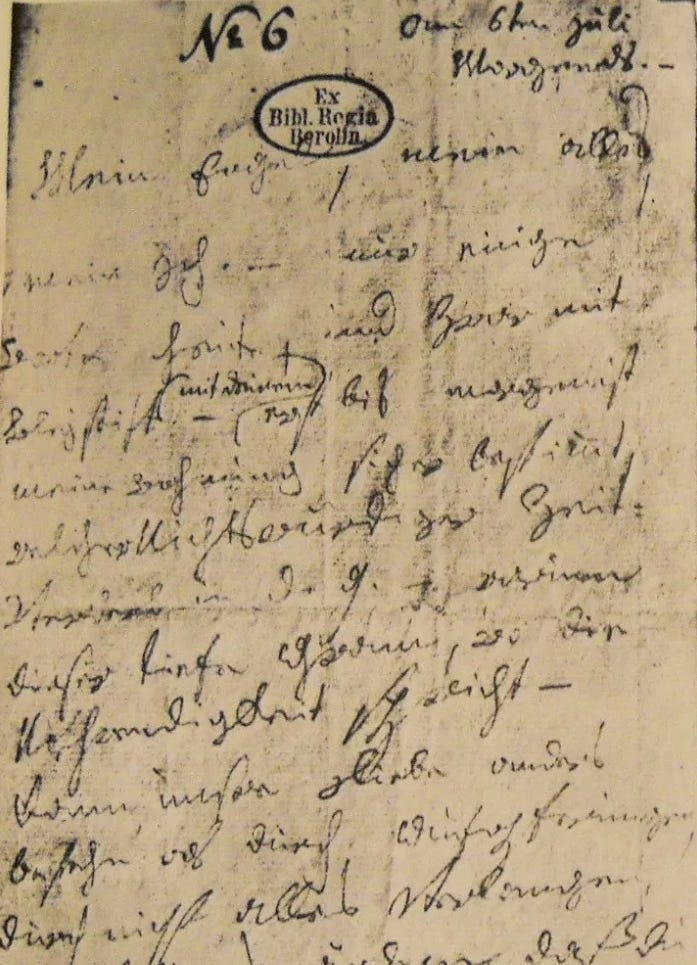 No 6
am 6ten Juli
Morgends. –
Ex
Bibl. Regia
Berolin.
Mein Engel, mein alles,
mein Ich. – nur einige
Worte heute, und zwar mit
Bleystift – (mit deinem)
erst bis morgen ist
meine Wohnung sicher bestimmt,
welcher Nichtswürdiger Zeit-
Verderb in d. g. – warum
dieser tiefe Gram, wo die
Nothwendigkeit spricht –
Kann unsre Liebe anders
bestehn als durch Aufopferungen,
durch nicht alles Verlangen,
ändern, daß du